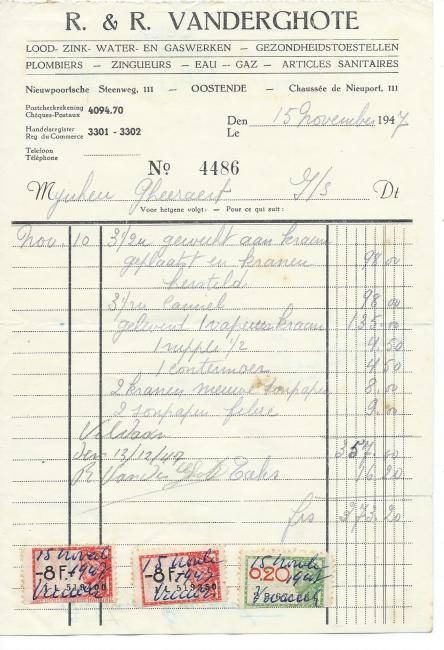 R. & R. VANDERGHOTE
LOOD- ZINK- WATER- EN GASWERKEN – GEZONDHEIDSTOESTELLEN
PLOMBIERS – ZINGUEURS – EAU – GAZ – ARTICLES SANITAIRES
Nieuwpoortsche Steenweg, 111 – OOSTENDE – Chaussée de Nieuport, 111
Postcheckrekening
Chèques-Postaux 4094.70
Handelsregister
Reg. du Commerce 3301 - 3302
Telefoon
Téléphone
Den 15 November 1947
Le
No 4486
Mynheer Gheeraert Dt
Voor hetgene volgt: – Pour ce qui suit:
Nov. 10 3½ u gewerkt aan kraan
geplaatst en kranen
hersteld 98.00
3½ u 98.00
geleverd 1 kraan 135.00
1 nipple ½ 4.50
1 contermoer 4.50
2 kranen nieuwe 8.00
2 fibre 9.00
Voldaan 357.00
den 13/12/47
R Vanderghote Taks 16.20
frs 373.20
15 Nov 1947
-8 F.
15 Nov 1947
-8 F.
15 Nov 1947
0,20